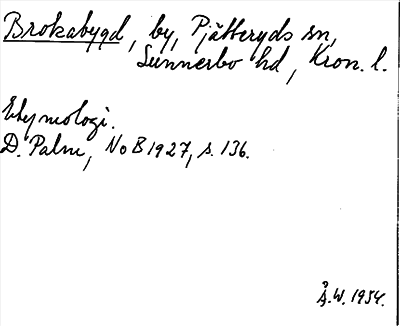 Brokabygd, by, Pjätteryds sn,
Sunnerbo hd, Kron. l.
Etymologi.
D. Palm, NoB 1927, s. 136.
Å.W. 1954.